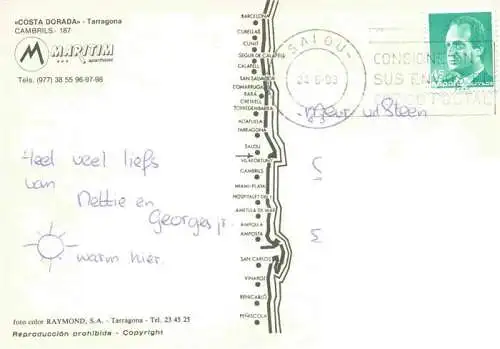 «COSTA DORADA» - Tarragona
CAMBRILS - 187
MARITIM
Tels. (977) 38 55 96-97-98
Heel veel liefs
van
Nettie en
Georges jr.
warm hier.
foto color RAYMOND, S.A. - Tarragona - Tel. 23 45 25
Reproducción prohibida - Copyright
BARCELONA
CUBELLAS
CUNIT
SEGUR DE CALAFELL
CALAFELL
SAN SALVADOR
COMARRUGA
BARÁ
CREIXELL
TORREDEMBARRA
ALTAFULLA
TARRAGONA
SALOU
VILAFORTUNY
CAMBRILS
MIAMI-PLAYA
HOSPITALET DEL I.
AMETLLA DE MAR
AMPOLLA
AMPOSTA
SAN CARLOS
VINAROZ
BENICARLÓ
PEÑÍSCOLA
SALOU
CONSIGNE EN
SUS
POSTAL